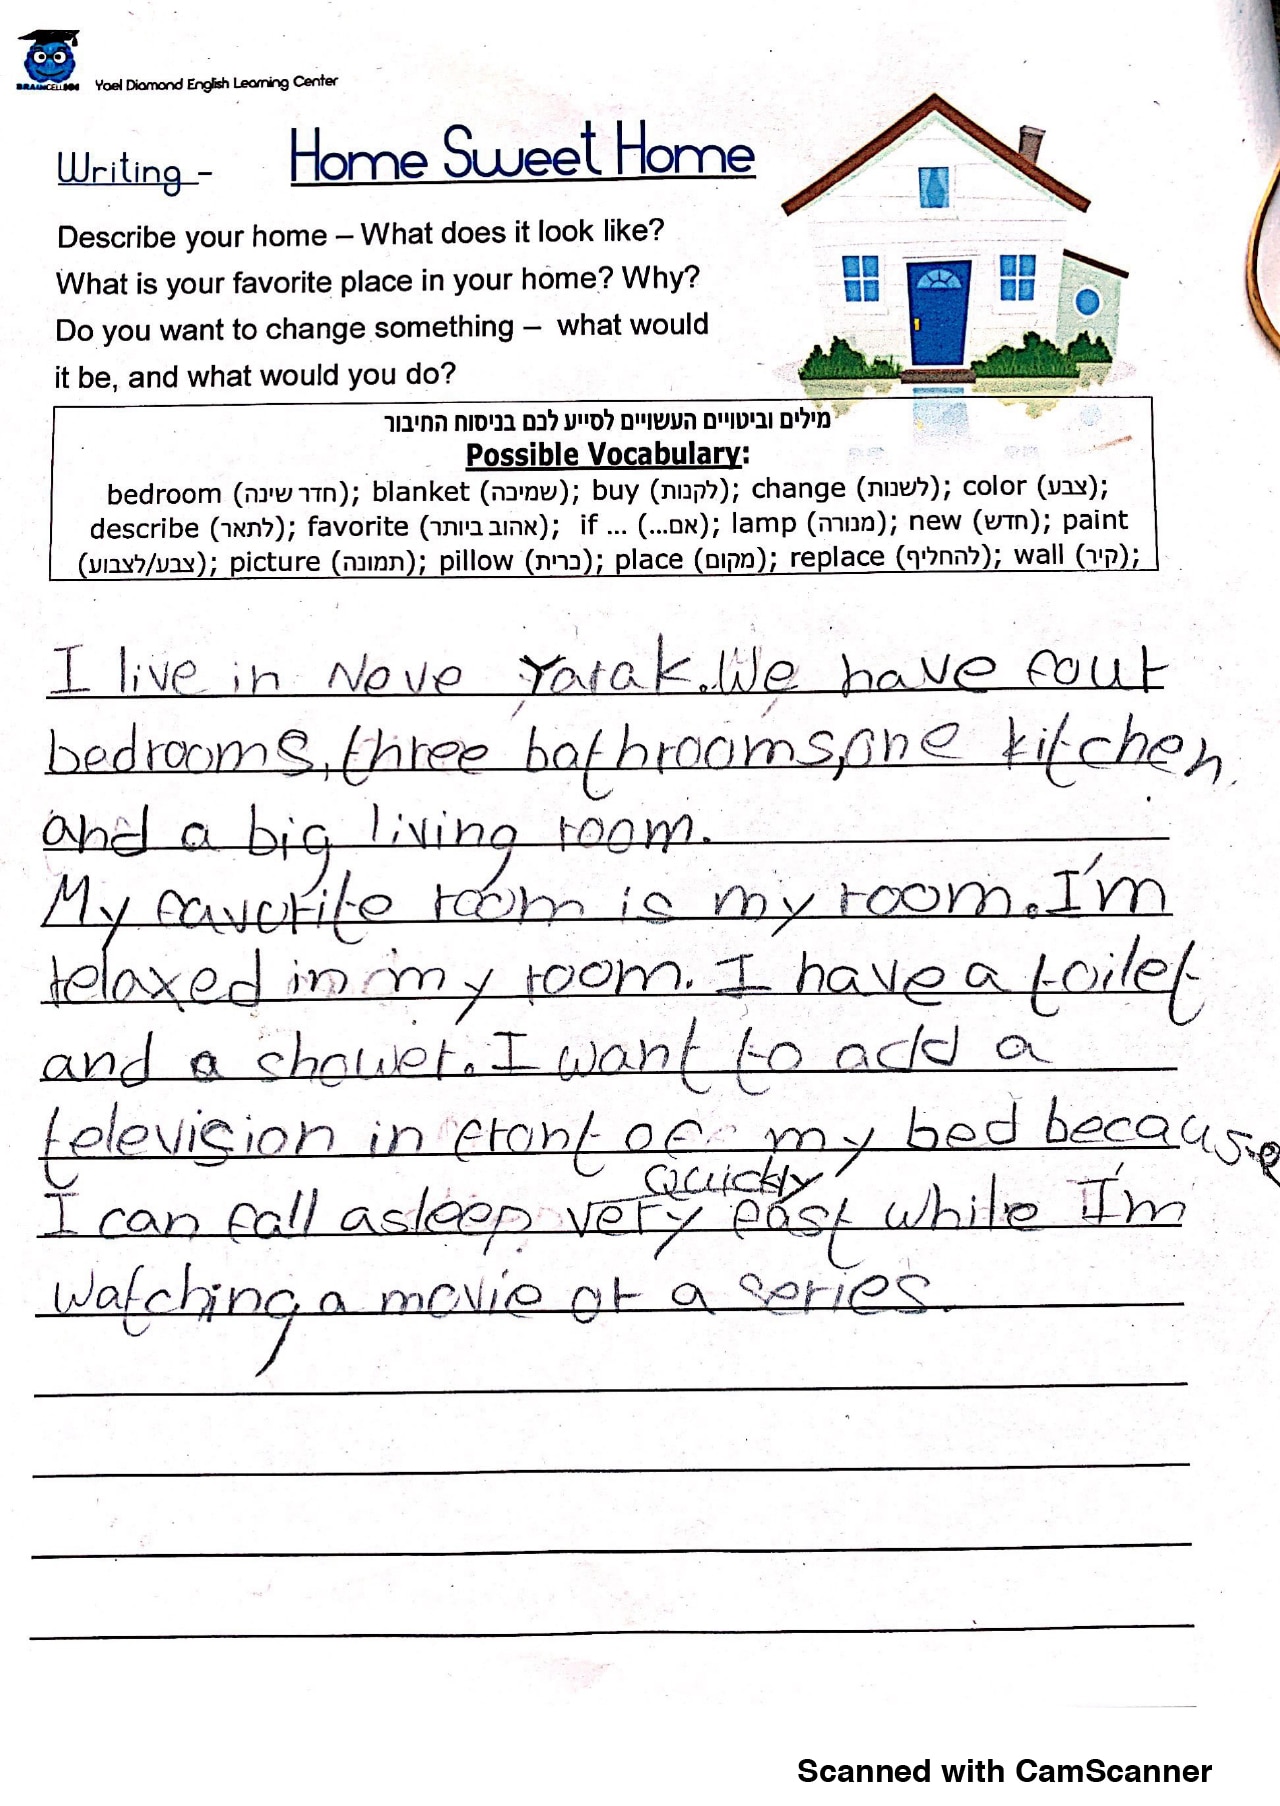 BRAINCELLS04
Yael Diamond English Learning Center
Writing - Home Sweet Home
Describe your home – What does it look like?
What is your favorite place in your home? Why?
Do you want to change something – what would
it be, and what would you do?
מילים וביטויים העשויים לסייע לכם בניסוח החיבור
Possible Vocabulary:
bedroom (חדר שינה); blanket (שמיכה); buy (לקנות); change (לשנות); color (צבע);
describe (לתאר); favorite (אהוב ביותר); if ... (אם...); lamp (מנורה); new (חדש); paint
(צבע/לצבוע); picture (תמונה); pillow (כרית); place (מקום); replace (להחליף); wall (קיר);
I live in Neve Yarak. We have four
bedrooms, three bathrooms, one kitchen
and a big living room.
My favorite room is my room. I'm
relaxed in my room. I have a toilet
and a shower. I want to add a
television in front of my bed because
quickly
I can fall asleep very fast while I'm
watching a movie or a series.
Scanned with CamScanner